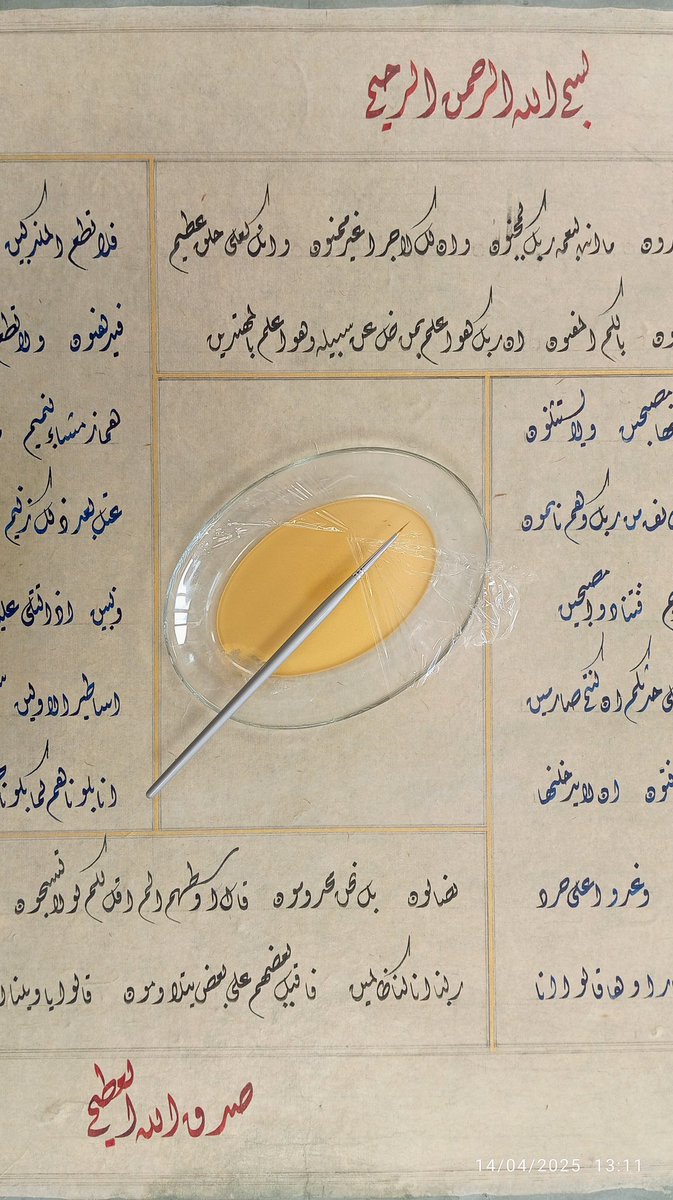 بسم الله الرحمن الرحيم
رون ما انت بنعمة ربك بمجنون وان لك لاجرا غير ممنون وانك لعلى خلق عظيم
ون باييكم المفتون ان ربك هو اعلم بمن ضل عن سبيله وهو اعلم بالمهتدين
فلا تطع المكذبين
فيدهنون ولا تطع
هماز مشاء بنميم
عتل بعد ذلك زنيم
وبنين اذا تتلى علي
اساطير الاولين
انا بلوناهم كما بلونا
نها مصبحين ولا يستثنون
ئف من ربك وهم نائمون
م فتنادوا مصبحين
ى حرثكم ان كنتم صارمين
فتون ان لا يدخلنها
وغدوا على حرد
راوها قالوا انا
لضالون بل نحن محرومون قال اوسطهم الم اقل لكم لولا تسبحون
ربنا انا كنا ظالمين فاقبل بعضهم على بعض يتلاومون قالوا يا ويلنا ا
صدق الله العظيم
14/04/2025 13:11